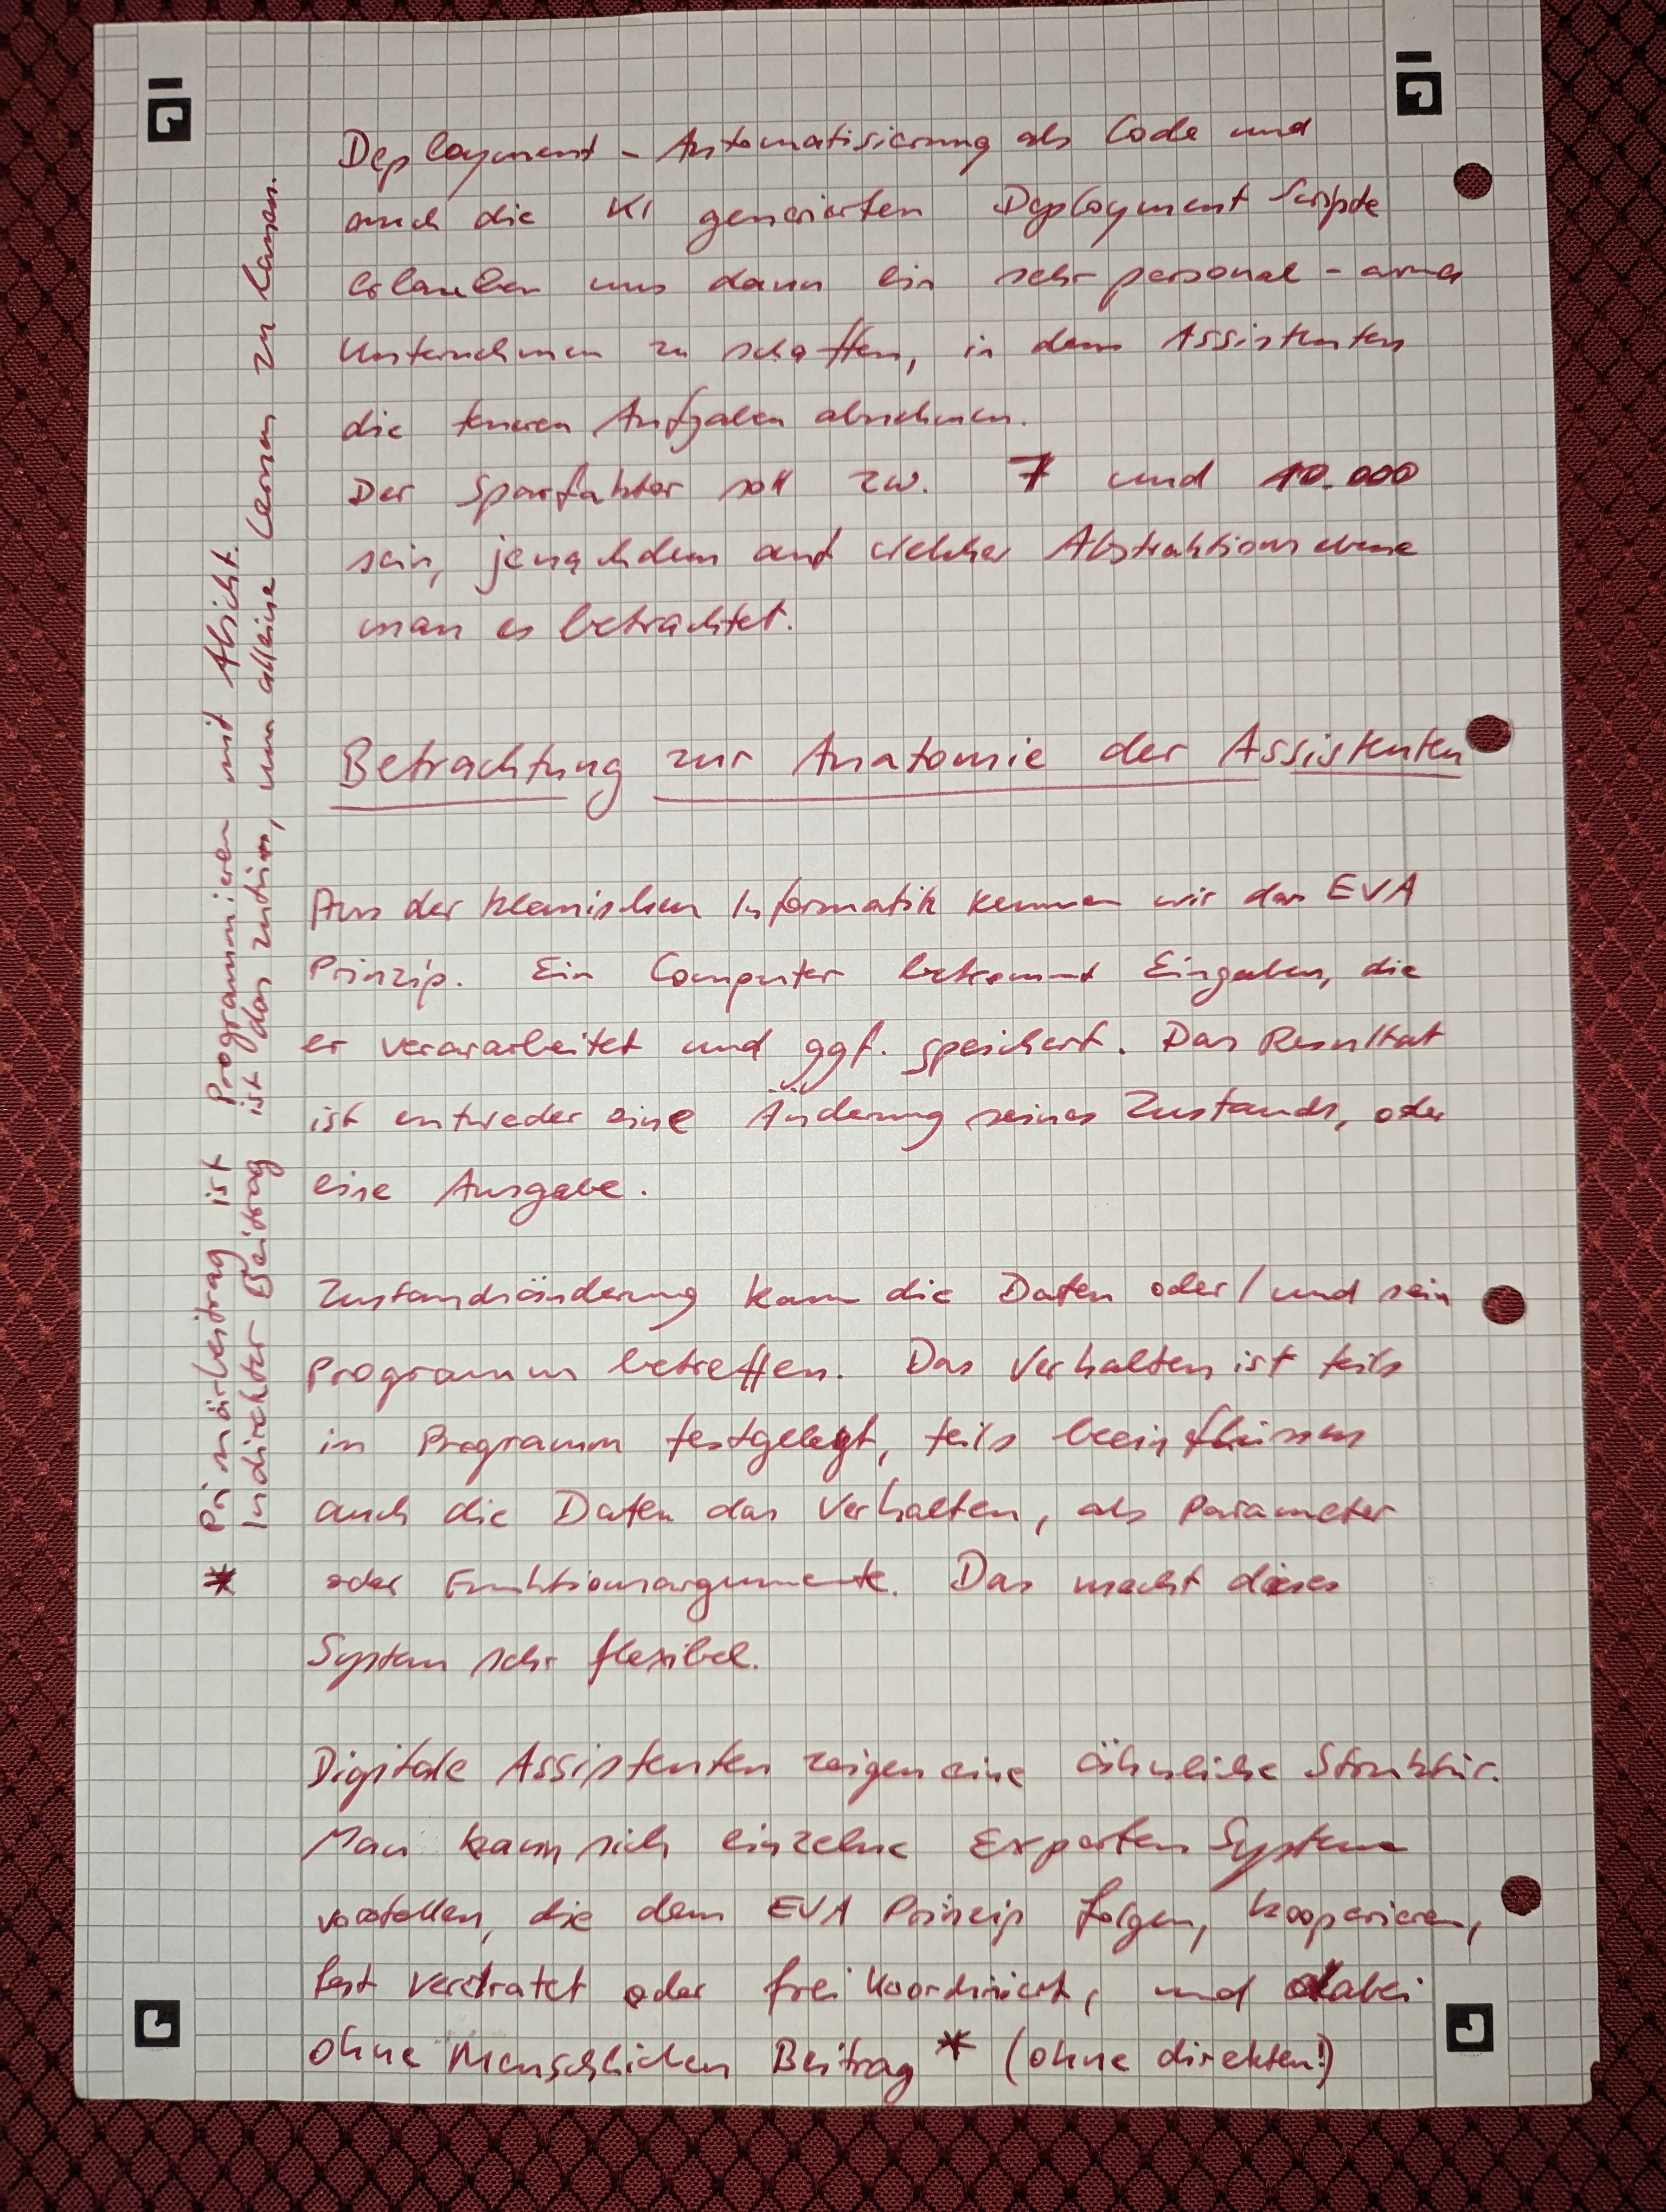 Deployment-Automatisierung als Code und
auch die KI generierten Deployment Scripte
erlauben uns dann ein sehr personal-armes
Unternehmen zu schaffen, in dem Assistenten
die teuren Aufgaben abnehmen.
Der Sparfaktor soll zw. 7 und 10.000
sein, jenachdem auf welcher Abstraktionsebene
man es betrachtet.
Betrachtung zur Anatomie der Assistenten
Aus der klassischen Informatik kennen wir das EVA
Prinzip. Ein Computer bekommt Eingaben, die
er verararbeitet und ggf. speichert. Das Resultat
ist entweder eine Änderung seines Zustands, oder
eine Ausgabe.
Zustandsänderung kann die Daten oder/und sein
Programm betreffen. Das Verhalten ist teils
in Programm festgelegt, teils beeinflussen
auch die Daten das Verhalten, als Parameter
oder Funktionsargumente. Das macht dieses
System sehr flexibel.
Digitale Assistenten zeigen eine ähnliche Struktur.
Man kann sich einzelne Experten Systeme
vorstellen, die dem EVA Prinzip folgen, kooperieren,
fest verdratet oder frei koordiniert, und dabei
ohne Menschlichen Beitrag * (ohne direkten!)
* Primärbeitrag ist Programmieren mit Absicht.
Indirchter Beitrag ist das zutun, um alleine Lernen zu lassen.